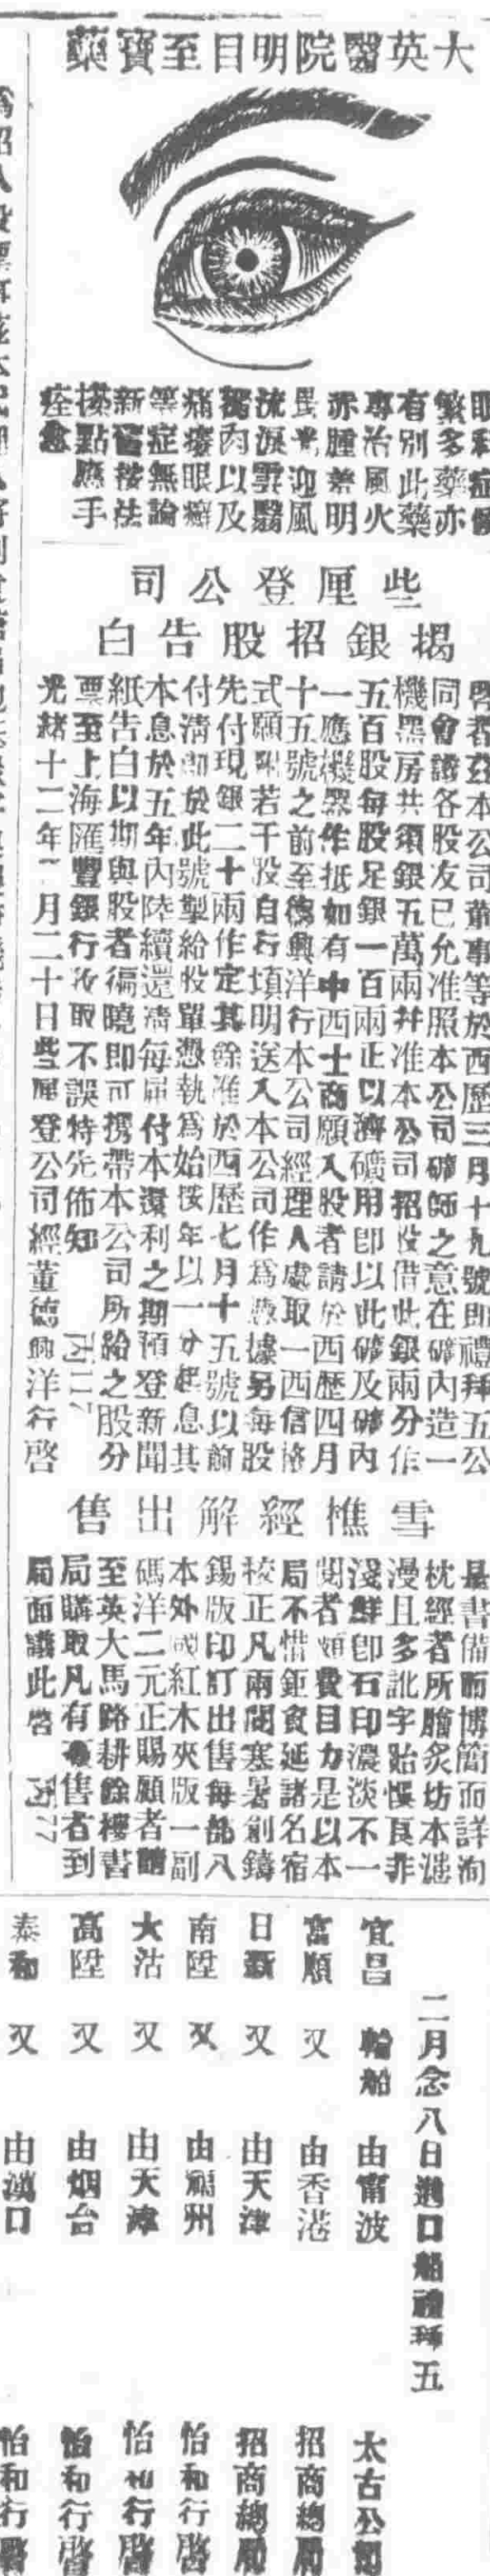 大英醫院明目至寶藥
眼科症候
繁多藥亦
有別此藥
專治風火
赤腫羞明
畏光迎風
流淚雲翳
翳內以及
痛癢眼癬
等症無論
新舊按法
搽點應手
痊愈
些厘登公司
揭銀招股告白
啓者茲本公司董事等於西歷三月十九號即禮拜五公
同會議各股友已允准照本公司礦師之意在礦內造一
機器房共須銀五萬兩幷准本公司招股借此銀兩分作
五百股每股足銀一百兩正以濟礦用即以此礦及礦內
一應機器作抵如有中西士商願入股者請於西歷四月
十五號之前至德興洋行本公司經理人處取一西信格
式願附若干股自行塡明送入本公司作爲憑據另每股
先付現銀二十兩作定其餘准於西歷七月十五號以前
付淸卽於此號製給股單憑執爲始按年以一分起息其
本息於五年內陸續還淸每屆付本還利之期預登新聞
紙告白以期與股者徧曉即可攜帶本公司所給之股分
票至上海匯豐銀行收取不誤特先佈知
光緒十二年二月二十日些厘登公司經董德興洋行啓
雪樵經解出售
是書備而博簡而詳洵
枕經者所膾炙坊本漶
漫且多訛字貽悞良非
淺鮮卽石印濃淡不一
閱者頗費目力是以本
局不惜鉅貲延諸名宿
校正凡兩閱寒暑創鑄
錫版印訂出售每部八
本外國紅木夾版一副
碼洋二元正賜顧者請
至英大馬路耕餘樓書
局購取凡有躉售者到
局面議此啓
二月念八日進口船禮拜五
宜昌 輪船 由甯波 太古公司
富順 又 由香港 招商總局
日新 又 由天津 招商總局
南陞 又 由福州 怡和行啓
大沽 又 由天津 怡和行啓
高陞 又 由烟台 怡和行啓
泰和 又 由漢口 怡和行啓